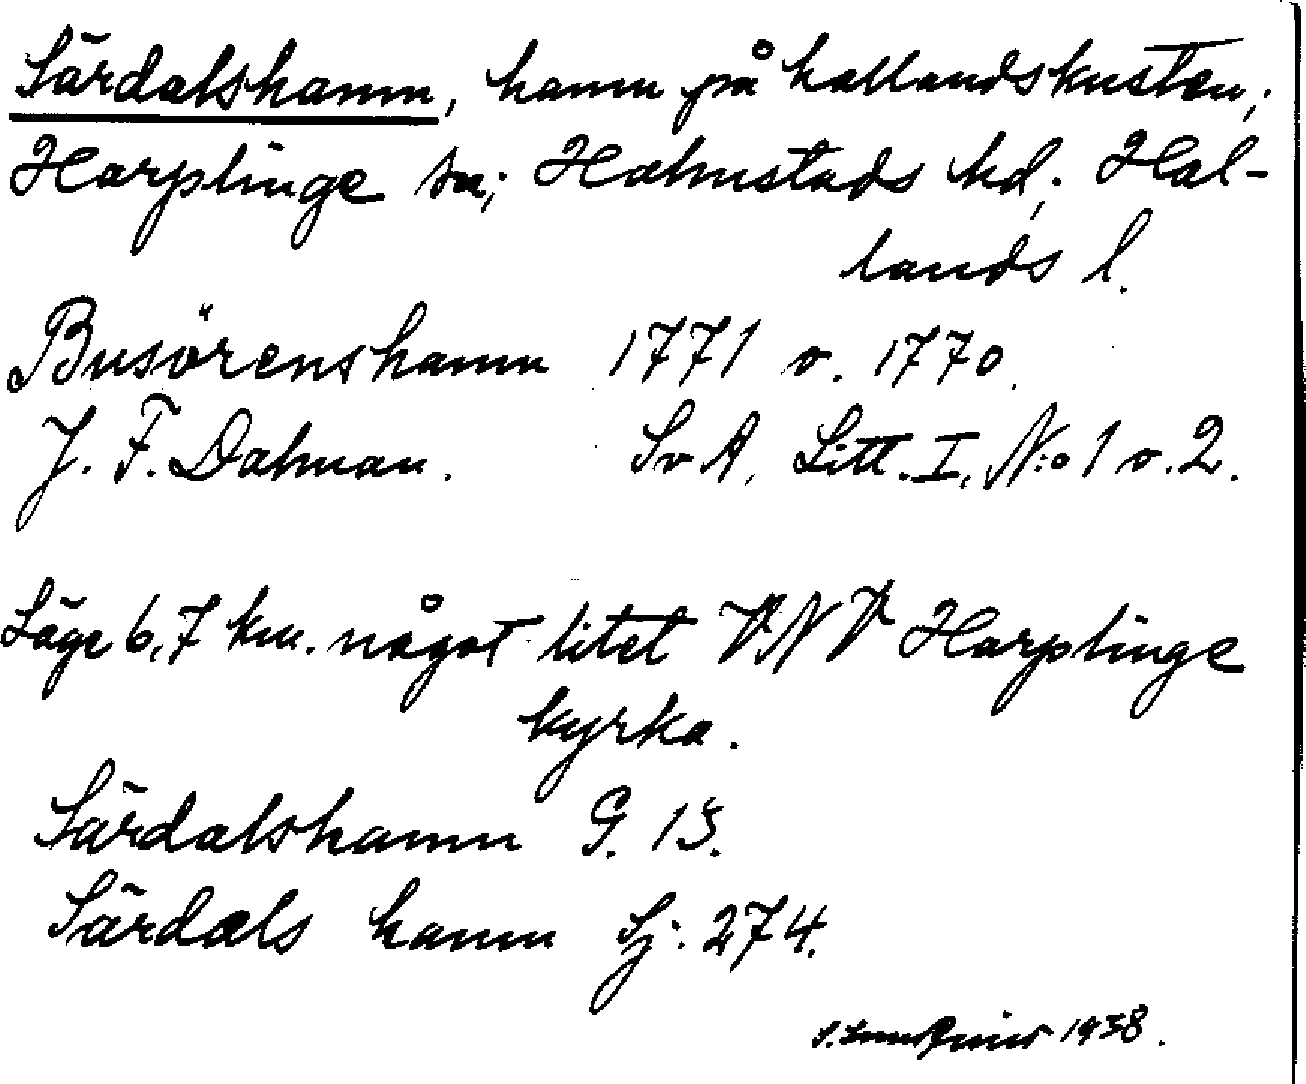 Särdalshamn, hamn på hallandskusten;
Harplinge sn; Halmstads hd; Hal-
lands l.
Busörenshamn 1771 o. 1770.
J. F. Dalman. Sv A, Litt. I, N:o 1 o. 2.
Läge 6,7 km. något litet VNV Harplinge
kyrka.
Särdalshamn G. 13.
Särdals hamn Sj: 274.
1938.